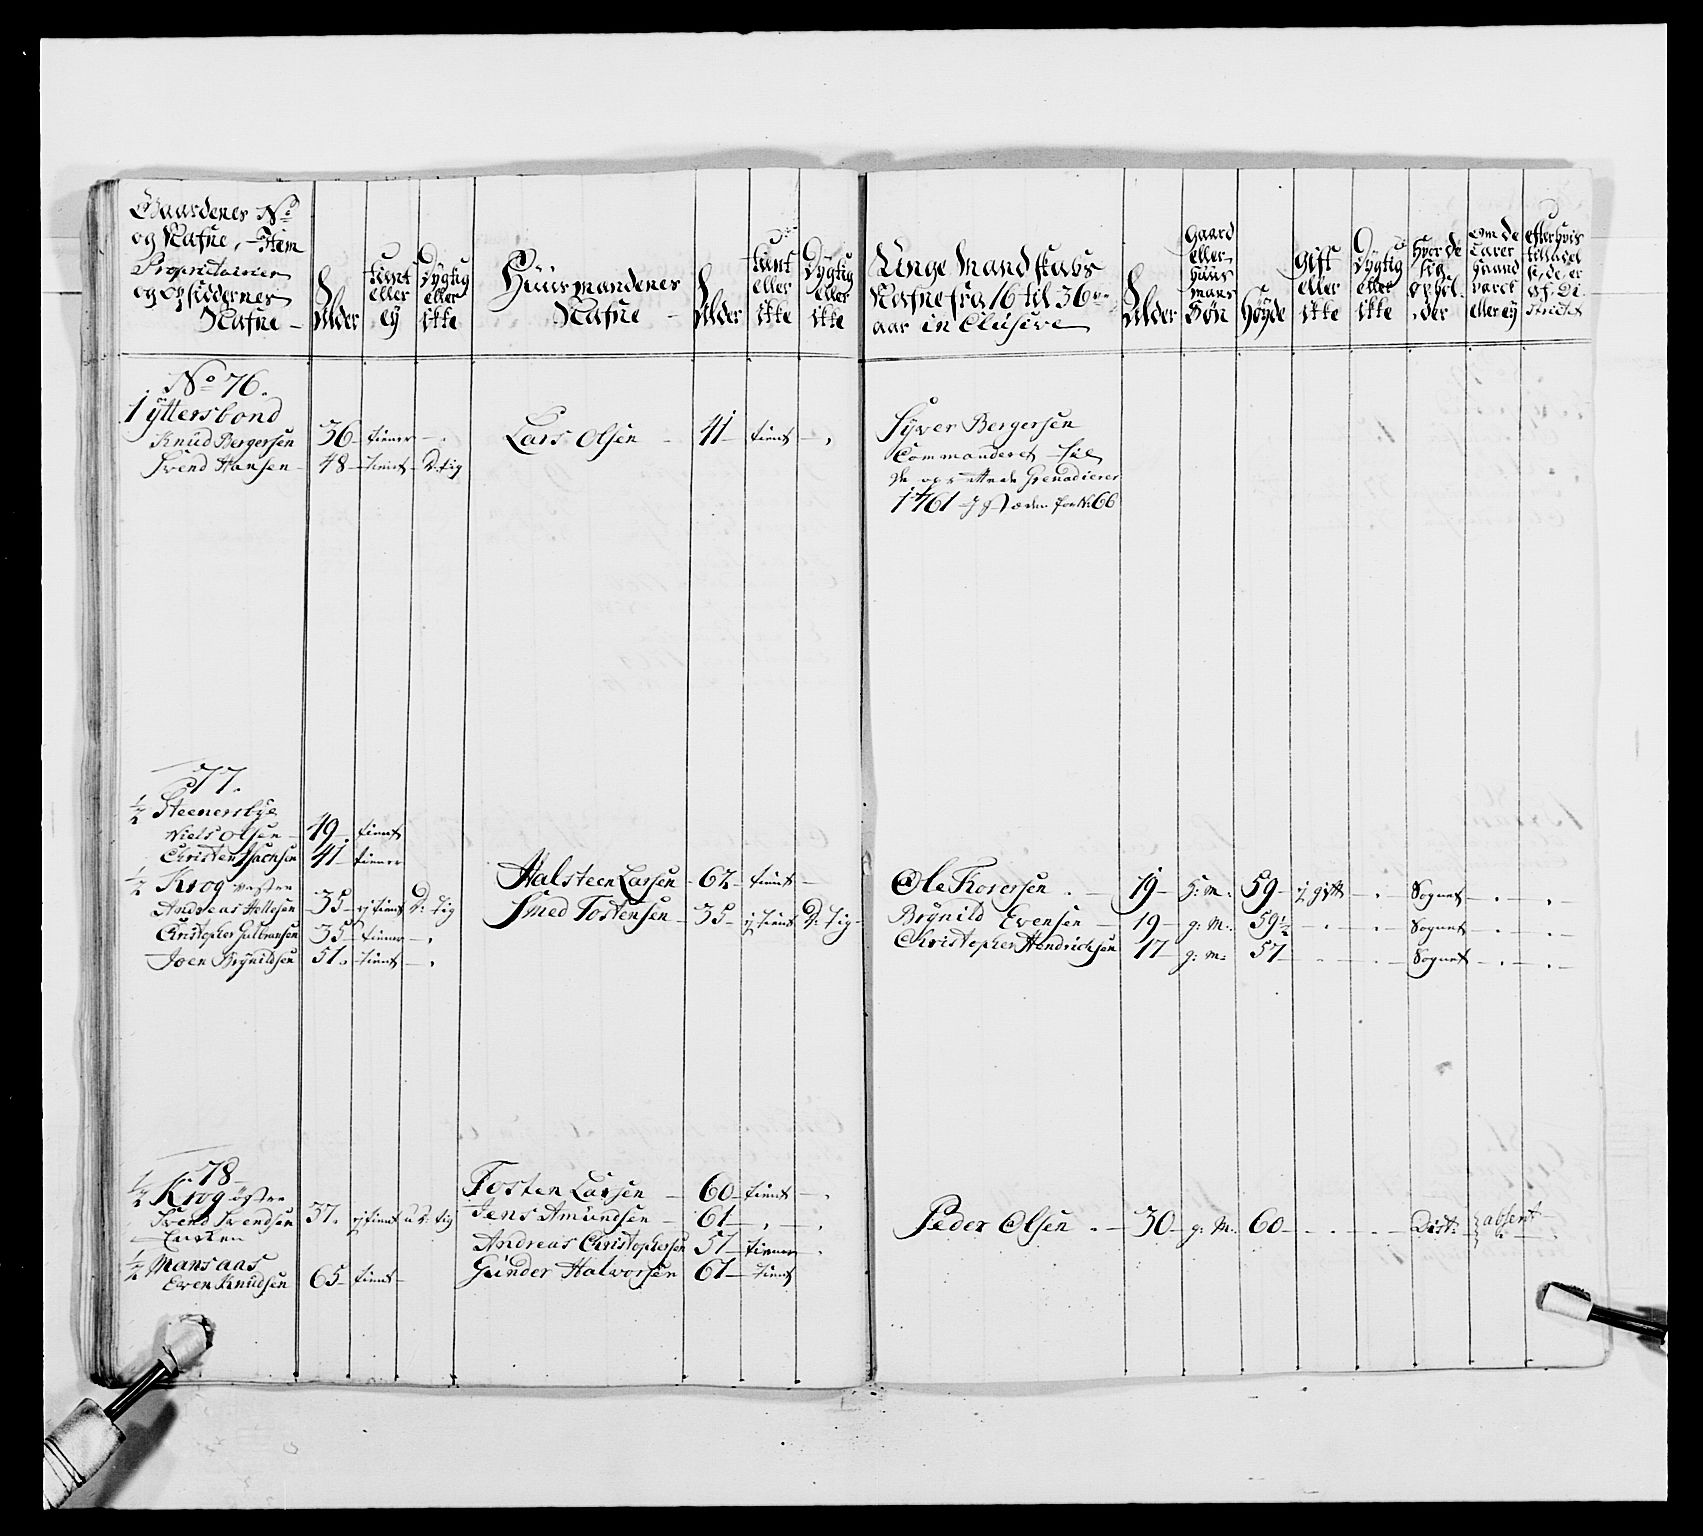 Gaardenes No
og Nafne, Item
Proprietairer
og Opsiddernes
Nafne
Alder
tient
eller
ey
Dygtig
eller
ikke
Huusmandenes
Nafne
Alder
tient
eller
ikke
Dygtig
eller
ikke
Unge Mandskabs
Nafne fra 16 til 36
aar inclusive
Alder
Gaard
eller
huus
mans
Søn
Høyde
Gift
eller
ikke
Dygtig
eller
ikke
Hvor de
sig
ophol
der
Om de
har
været
eller ey
No 76.
Yttersbond
Knud Bergersen 36 tiener
Svend Hansen 48 tient D:tig
Lars Olsen 41 tient
Syver Bergersen
Commanderet til
de oprettede Grenaderer
1761
77.
1/2 Steenersbye
Niels Olsen 49 tient
Christen Isachsen 41 tiener
1/2 Krog vestre
Andreas Hellesen 35 ej tient D:tig
Christopher Gulbransen 35 tiener
Joen Brynildsen 51 tient
Halsteen Larsen 62 tient
Smed Tostensen 35 ej tient D:tig
Ole Torersen 19 h: m: 59 ej gift Sognet
Brynild Evensen 19 g: m: 59 1/2 Sognet
Christopher Hendrichsen 17 g: m: 57 Sognet
78
1/2 Krog østre
Svend Svendsen 37 ej tient u D:tig
Enken
1/2 Mansaas
Even Knudsen 65 tient
Tosten Larsen 60 tient
Jens Amundsen 61
Andreas Christophersen 57 tiener
Gunder Halvorsen 61 tient
Peder Olsen 30 g: m: 60 Dist: absent